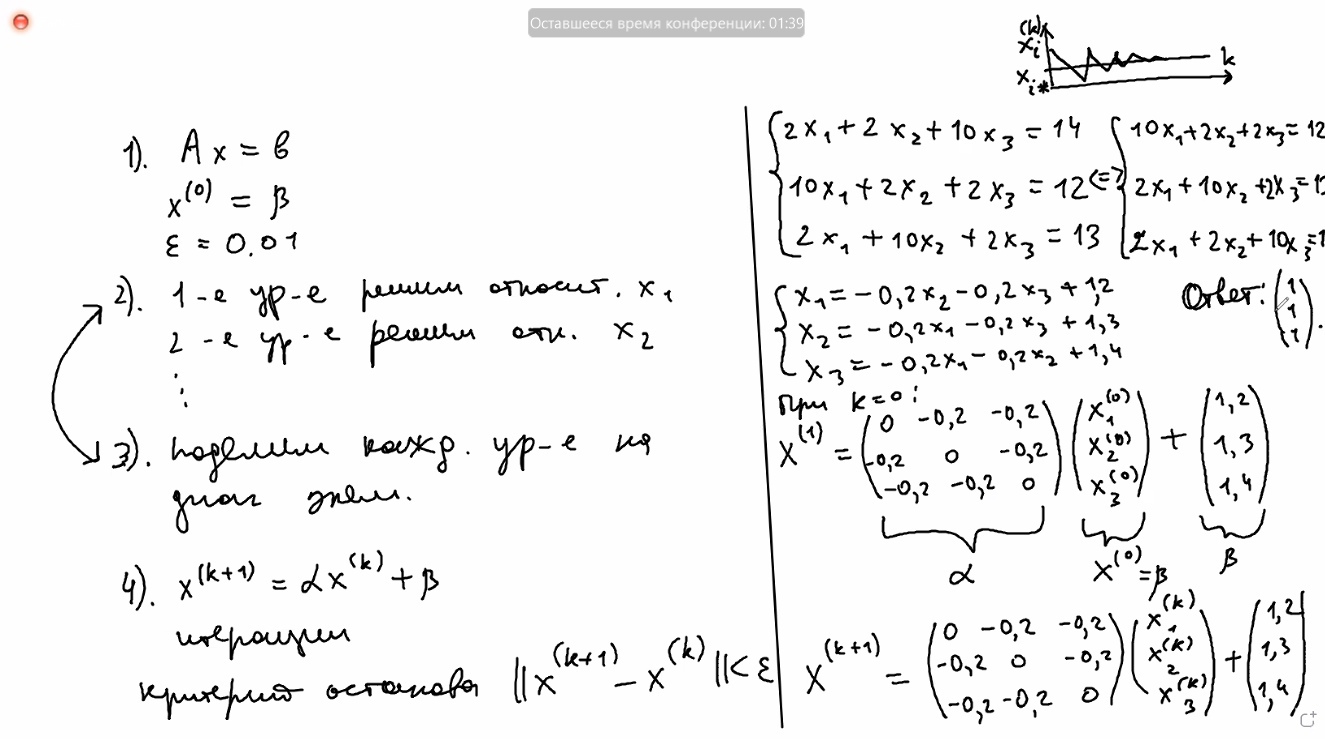 Оставшееся время конференции: 01:39
1). Ax = b
x^(0) = β
ε = 0.01
2). 1-е ур-е решим относит. x₁
2-е ур-е решим отн. x₂
⋮
3). поделим кажд. ур-е на
диаг элем.
4). x^(k+1) = αx^(k) + β
итерации
критерий останова ||x^(k+1) − x^(k)|| < ε
x_i^(k)
x_i*
k
{ 2x₁ + 2x₂ + 10x₃ = 14
10x₁ + 2x₂ + 2x₃ = 12 <=>
2x₁ + 10x₂ + 2x₃ = 13
{ 10x₁ + 2x₂ + 2x₃ = 12
2x₁ + 10x₂ + 2x₃ = 1
2x₁ + 2x₂ + 10x₃ = 1
{ x₁ = −0,2x₂ − 0,2x₃ + 1,2
x₂ = −0,2x₁ − 0,2x₃ + 1,3
x₃ = −0,2x₁ − 0,2x₂ + 1,4
Ответ: (1 1 1).
при k=0:
x^(1) = (0 −0,2 −0,2
−0,2 0 −0,2
−0,2 −0,2 0) (x₁^(0) x₂^(0) x₃^(0)) + (1,2 1,3 1,4)
α x^(0) = β β
x^(k+1) = (0 −0,2 −0,2
−0,2 0 −0,2
−0,2 −0,2 0) (x₁^(k) x₂^(k) x₃^(k)) + (1,2 1,3 1,4)